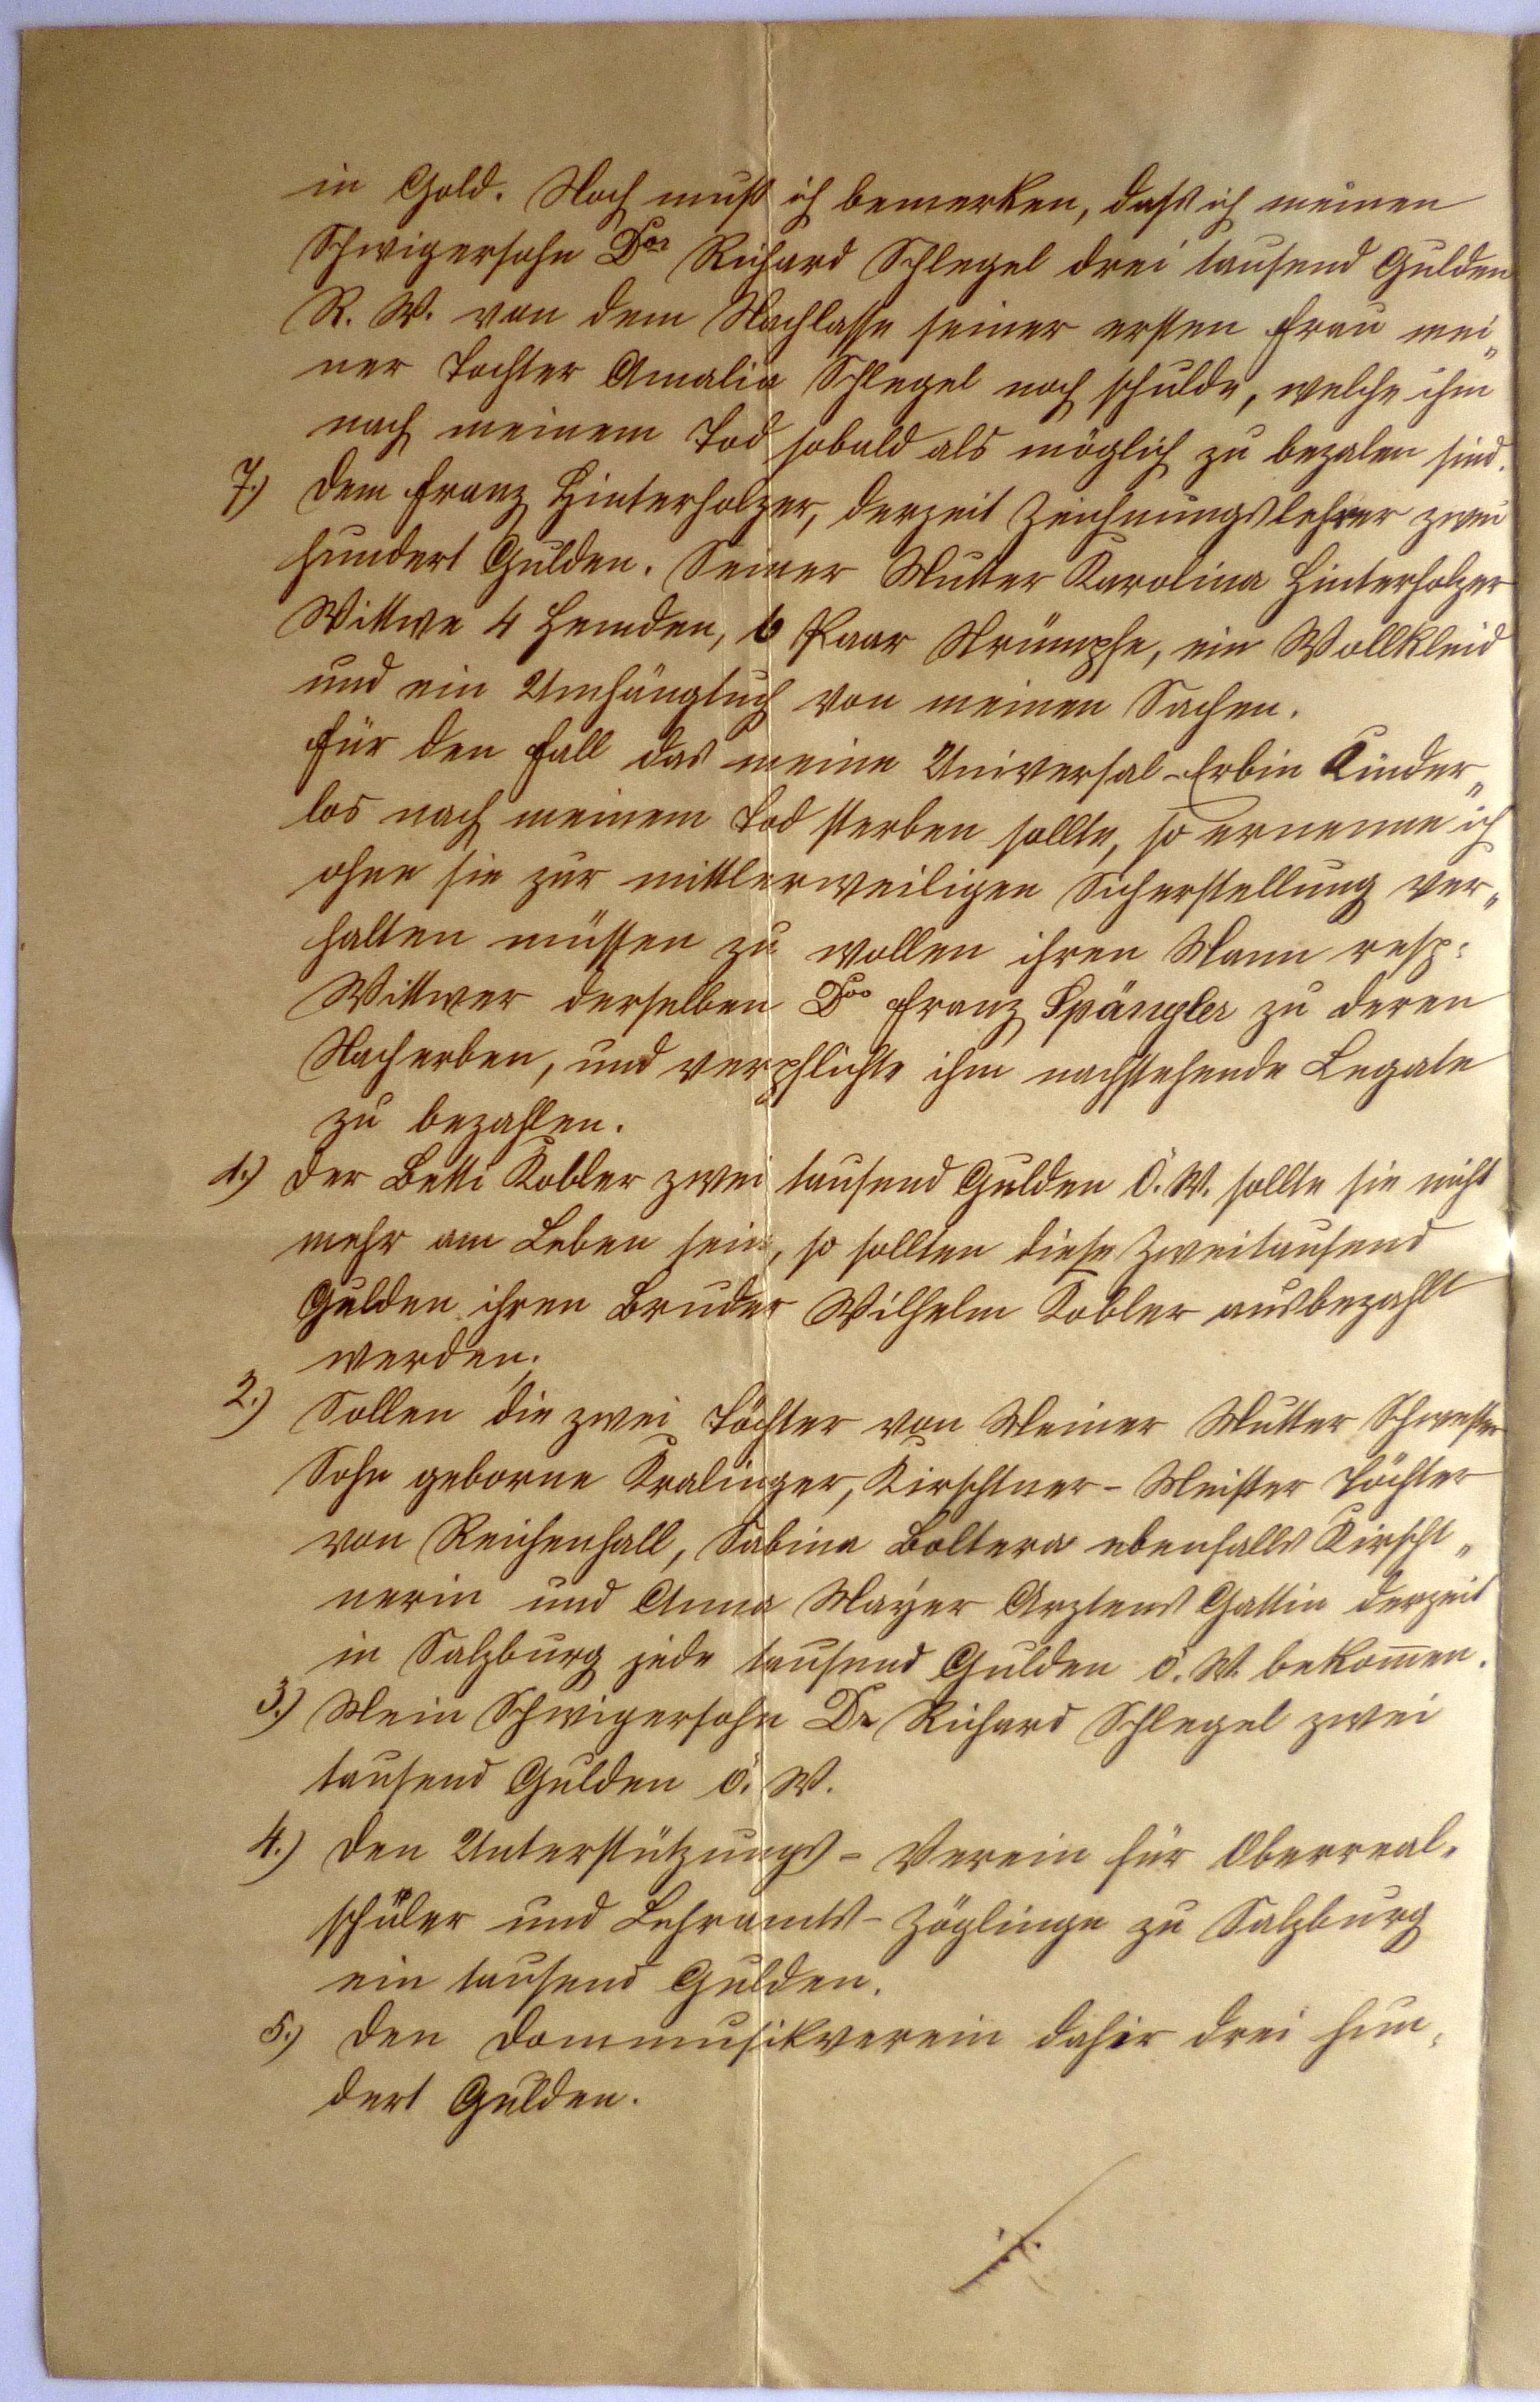 in Gold. Noch muß ich bemerken, daß ich meinen
Schwigersohn Dor Richard Schlegel drei tausend Gulden
R. W. von dem Nachlasse seiner ersten Frau mei„
ner Tochter Amalia Schlegel noch schulde, welche ihm
nach meinem Tod sobald als möglich zu bezalen sind.
7.) Dem Franz Hinterholzer, derzeit Zeichnungslehrer zwei
hundert Gulden. Seiner Mutter Karolina Hinterholzer
Wittwe 4 Hemden, 6 Paar Strümpfe, ein Wollkleid
und ein Umhängtuch von meinen Sachen.
Für den Fall das meine Universal-Erbin Kinder„
los nach meinem Tod sterben sollte, so ernenne ich
ohne sie zur mittlerweiligen Sicherstellung ver„
halten müssen zu wollen ihren Mann resp:
Wittwer derselben Dor Franz Spängler zu deren
Nacherben, und verpflichte ihm nachstehende Legate
zu bezahlen.
1.) Der Betti Kobler zwei tausend Gulden Ö. W. sollte sie nicht
mehr am Leben sein, so sollten diese Zweitausend
Gulden ihren Bruder Wilhelm Kobler ausbezahlt
werden.
2.) Sollen die zwei Töchter von Meiner Mutter Schwester
Sohn geborne Kralinger, Kirschtner-Meister Töchter
von Reichenhall, Sabina Boltera ebenfalls Kirscht„
nerin und Anna Mayer Arztens Gattin derzeit
in Salzburg jede tausend Gulden ö. W. bekom̅en.
3.) Mein Schwigersohn Dr Richard Schlegel zwei
tausend Gulden ö. W.
4.) Den Unterstützungs-Verein für Oberreal-
schüler und Lehramts-Zöglinge zu Salzburg
ein tausend Gulden.
5.) Den Dommusikverein dahir drei hun„
dert Gulden.